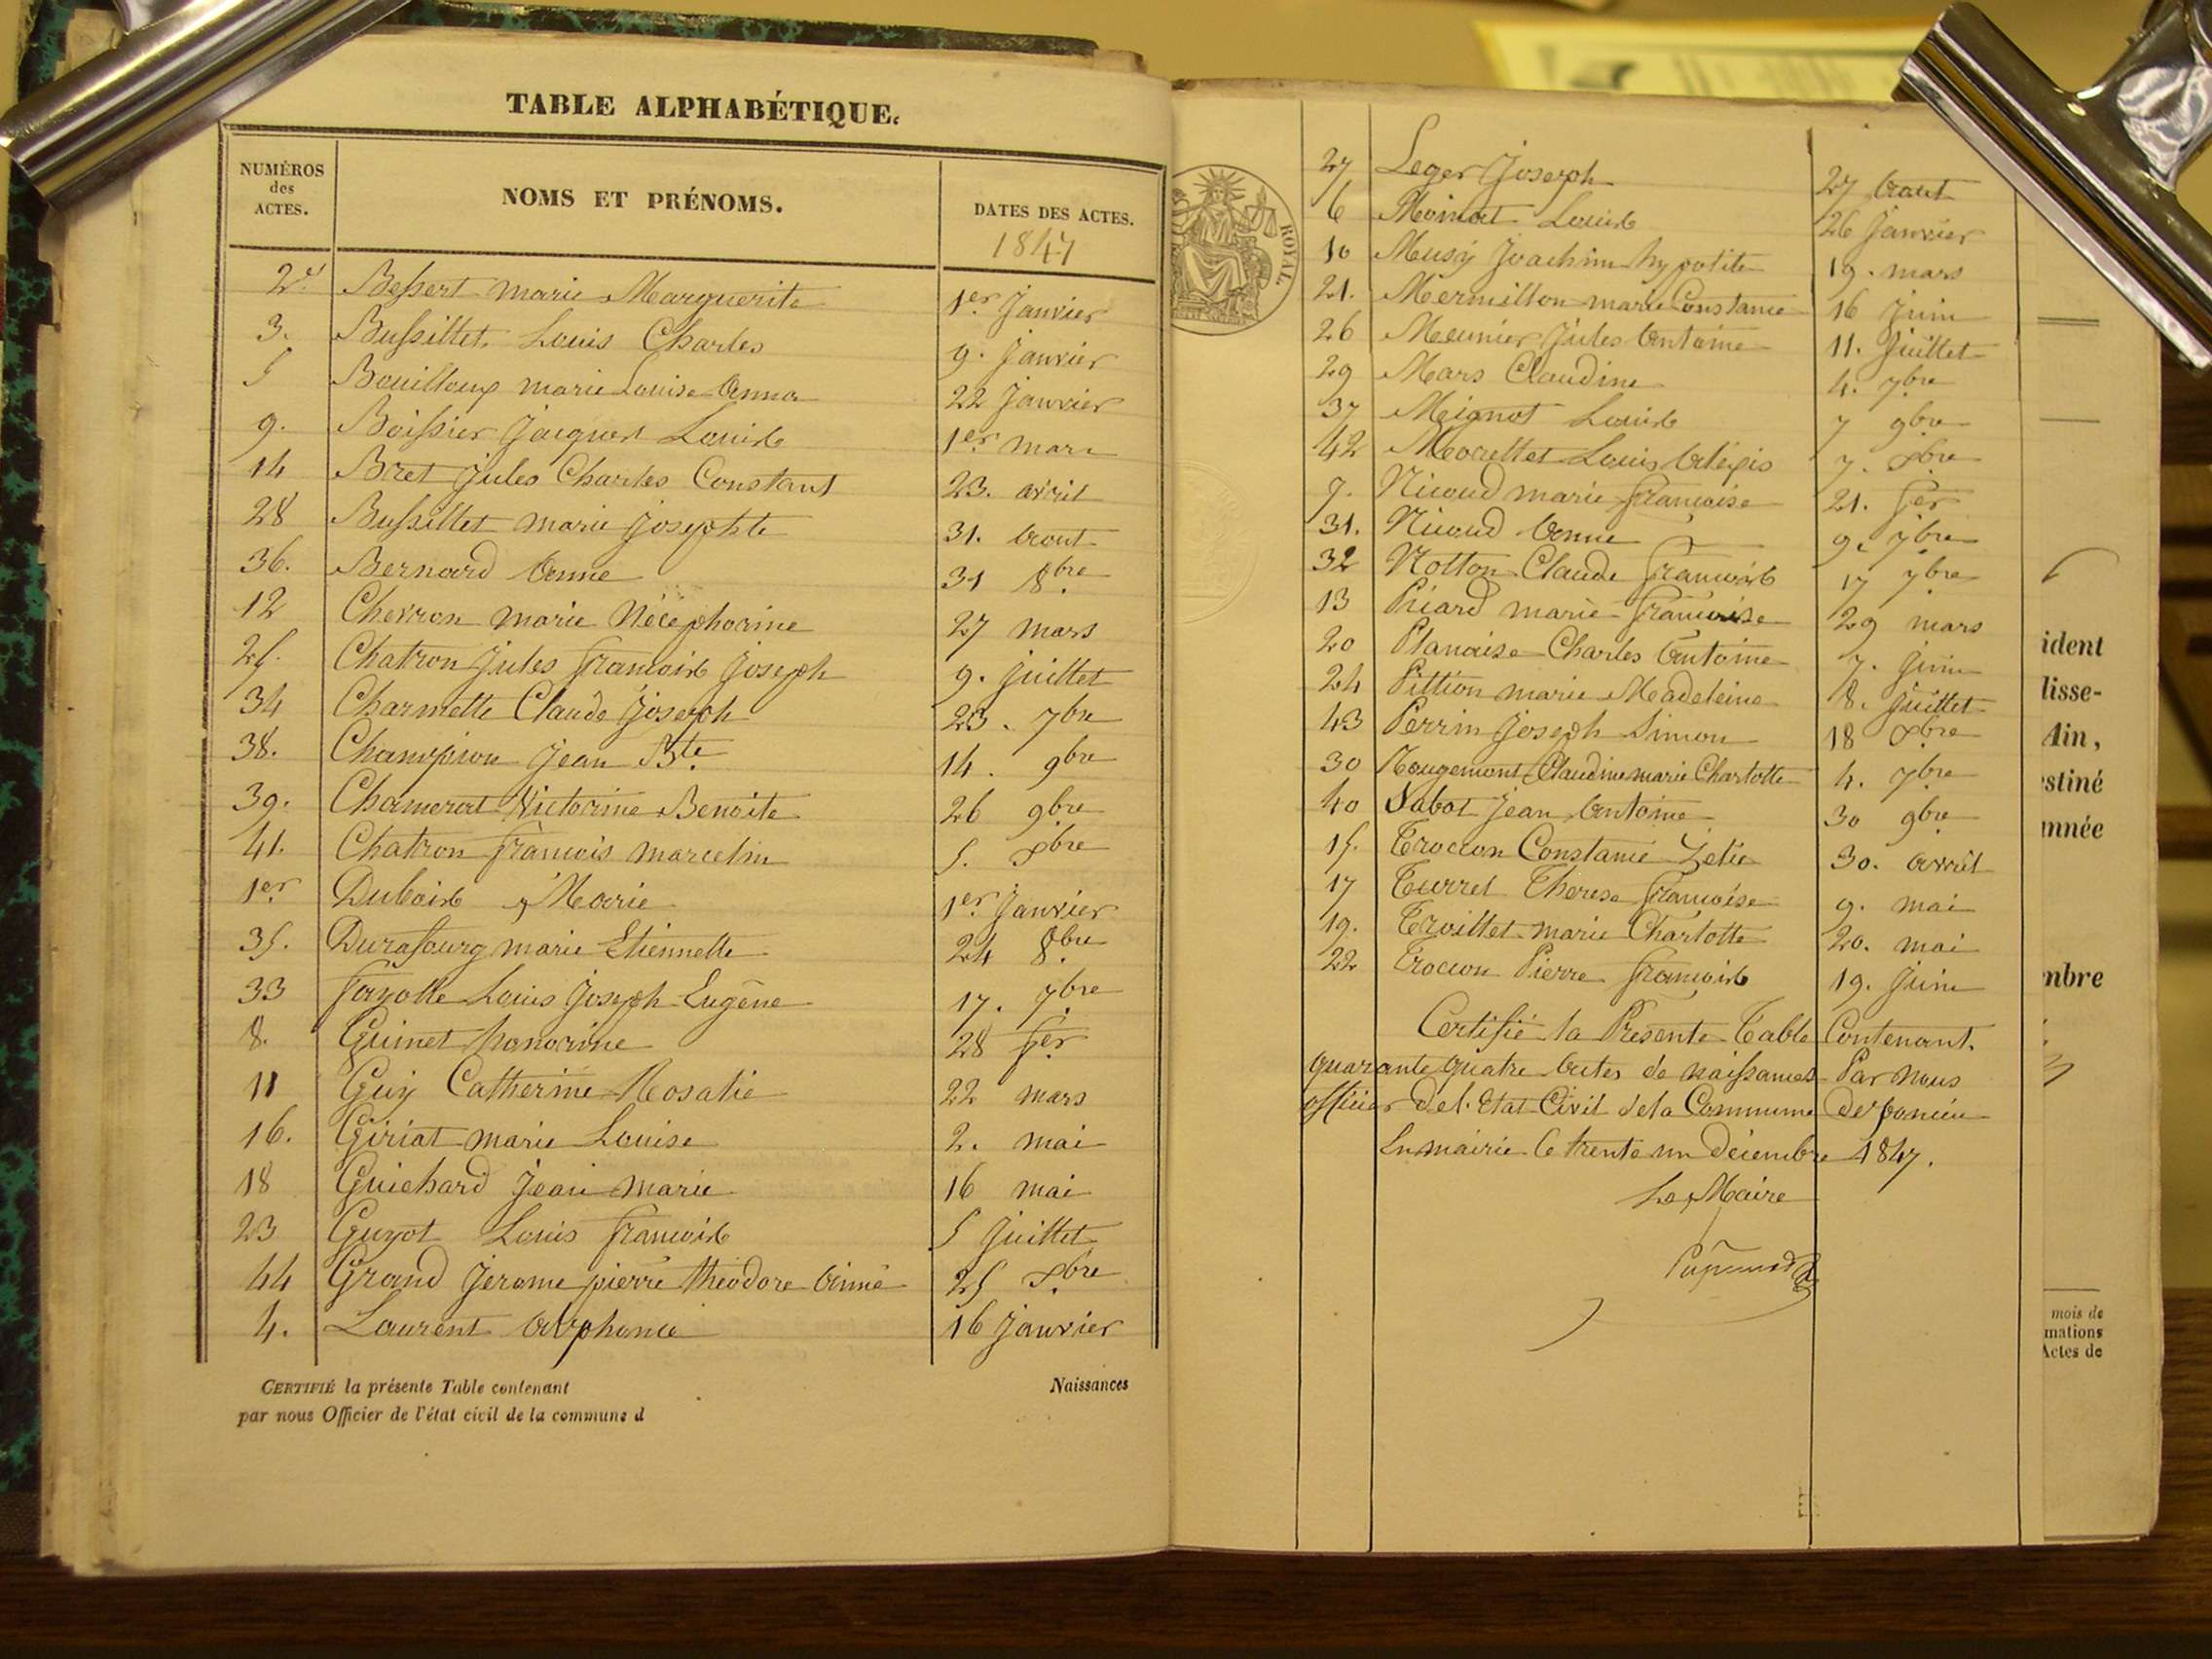 TABLE ALPHABÉTIQUE.
NUMÉROS des ACTES.
NOMS ET PRÉNOMS.
DATES DES ACTES.
1847
2e Bessert marie Marguerite 1er Janvier
3. Bussillet Louis Charles 9. Janvier
5 Bouilloux marie Louise Anna 22 Janvier
9. Boissier Jacques Louis 1er mars
14 Bret Jules Charles Constant 23. avril
28 Bussillet marie Josephte 31. Aout
36. Bernard Anne 31 8bre
12 Chevron marie Nécéphorine 27 mars
25. Chatron Jules François Joseph 9. Juillet
34 Charmette Claude Joseph 23. 7bre
38. Champion Jean Bte 14. 9bre
39. Chamerat Victorine Benoite 26 9bre
41. Chatron François marcelin 5. Xbre
1er Dubois Marie 1er Janvier
35. Durafourg marie Etiennette 24 8bre
33 Fayolle Louis Joseph Eugène 17. 7bre
8. Guinet honorine 28 fer
11 Guy Catherine Rosalie 22 mars
16. Giriat marie Louise 2. mai
18 Guichard Jean marie 16 mai
23 Guyot Louis François 5 Juillet
44 Grand Jerome pierre théodore Aimé 25 Xbre
4. Laurent Alphonce 16 Janvier
CERTIFIÉ la présente Table contenant Naissances
par nous Officier de l'état civil de la commune d
ROYAL.
27 Leger Joseph 27 Aout
6 Moinat Louis 26 Janvier
10 Musy Joachim hypolite 19. mars
21. Mermillon marie Constance 16 Juin
26 Meunier Jules Antoine 11. Juillet
29 Mars Claudine 4. 7bre
37 Meignot Louis 7 9bre
42 Morellet Louis Alexis 7. Xbre
7. Nicoud marie françoise 21. fer
31. Nicoud Anne 9. 7bre
32 Notton Claude François 17 7bre
13 Piéard marie françoise 29 mars
20 Planaise Charles Antoine 7. Juin
24 Pittion marie Madeleine 8. Juillet
43 Perrin Joseph Simon 18 Xbre
30 Rougemont Claudine marie Charlotte 4. 7bre
40 Sabot Jean Antoine 30 9bre
15. Troccon Constance Zélie 30. Avril
17 Turrel Therese françoise 9. mai
19. Troillet marie Charlotte 20. mai
22 Troccon Pierre François 19. Juin
Certifié la Présente Table Contenant.
quarante quatre Actes de naissances Par nous
officier de l'Etat Civil de la Commune de
En mairie le trente un Décembre 1847.
Le Maire
ident
lisse-
Ain,
estiné
nnée
mbre
mois de
mations
Actes de